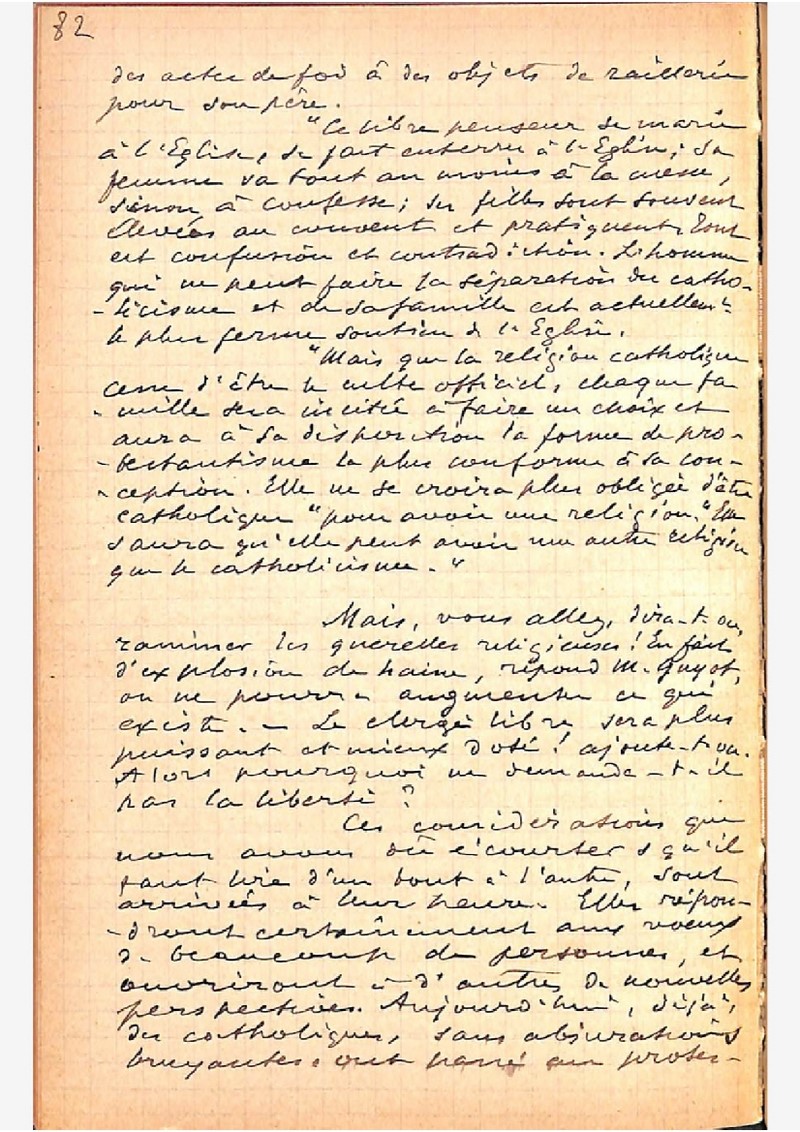 82
des actes de foi à des objets de raillerie
pour son père.
"Ce libre penseur se marie
à l'Eglise, se fait enterrer à l'Eglise; sa
femme va tout au moins à la messe,
sinon à confesse; ses filles sont souvent
élevées au couvent et pratiquent. Tout
est confusion et contradiction. L'homme
qui ne peut faire la séparation du catho-
-licisme et de sa famille est actuellemt
le plus ferme soutien de l'Eglise.
"Mais que la religion catholique
cesse d'être le culte officiel, chaque fa
-mille sera incitée à faire un choix et
aura à sa disposition la forme de pro-
-testantisme la plus conforme à sa con-
-ception. Elle ne se croira plus obligée d'être
catholique "pour avoir une religion." Elle
saura qu'elle peut avoir une autre religion
que le catholicisme."
Mais, vous allez, dira-t-on,
ranimer les querelles religieuses! En fait
d'explosion de haine, répond M. Guyot,
on ne pourra augmenter ce qui
existe. - Le clergé libre sera plus
puissant et mieux doté! ajoute-t-on.
Alors pourquoi ne demande-t-il
pas la liberté?
Ces considérations que
nous avons dû écourter & qu'il
faut lire d'un bout à l'autre, sont
arrivées à leur heure. Elles répon-
-dront certainement aux voeux
de beaucoup de personnes, et
ouvriront à d'autres de nouvelles
perspectives. Aujourd'hui, déjà,
des catholiques, sans abjurations
bruyantes, ont passé au protes-